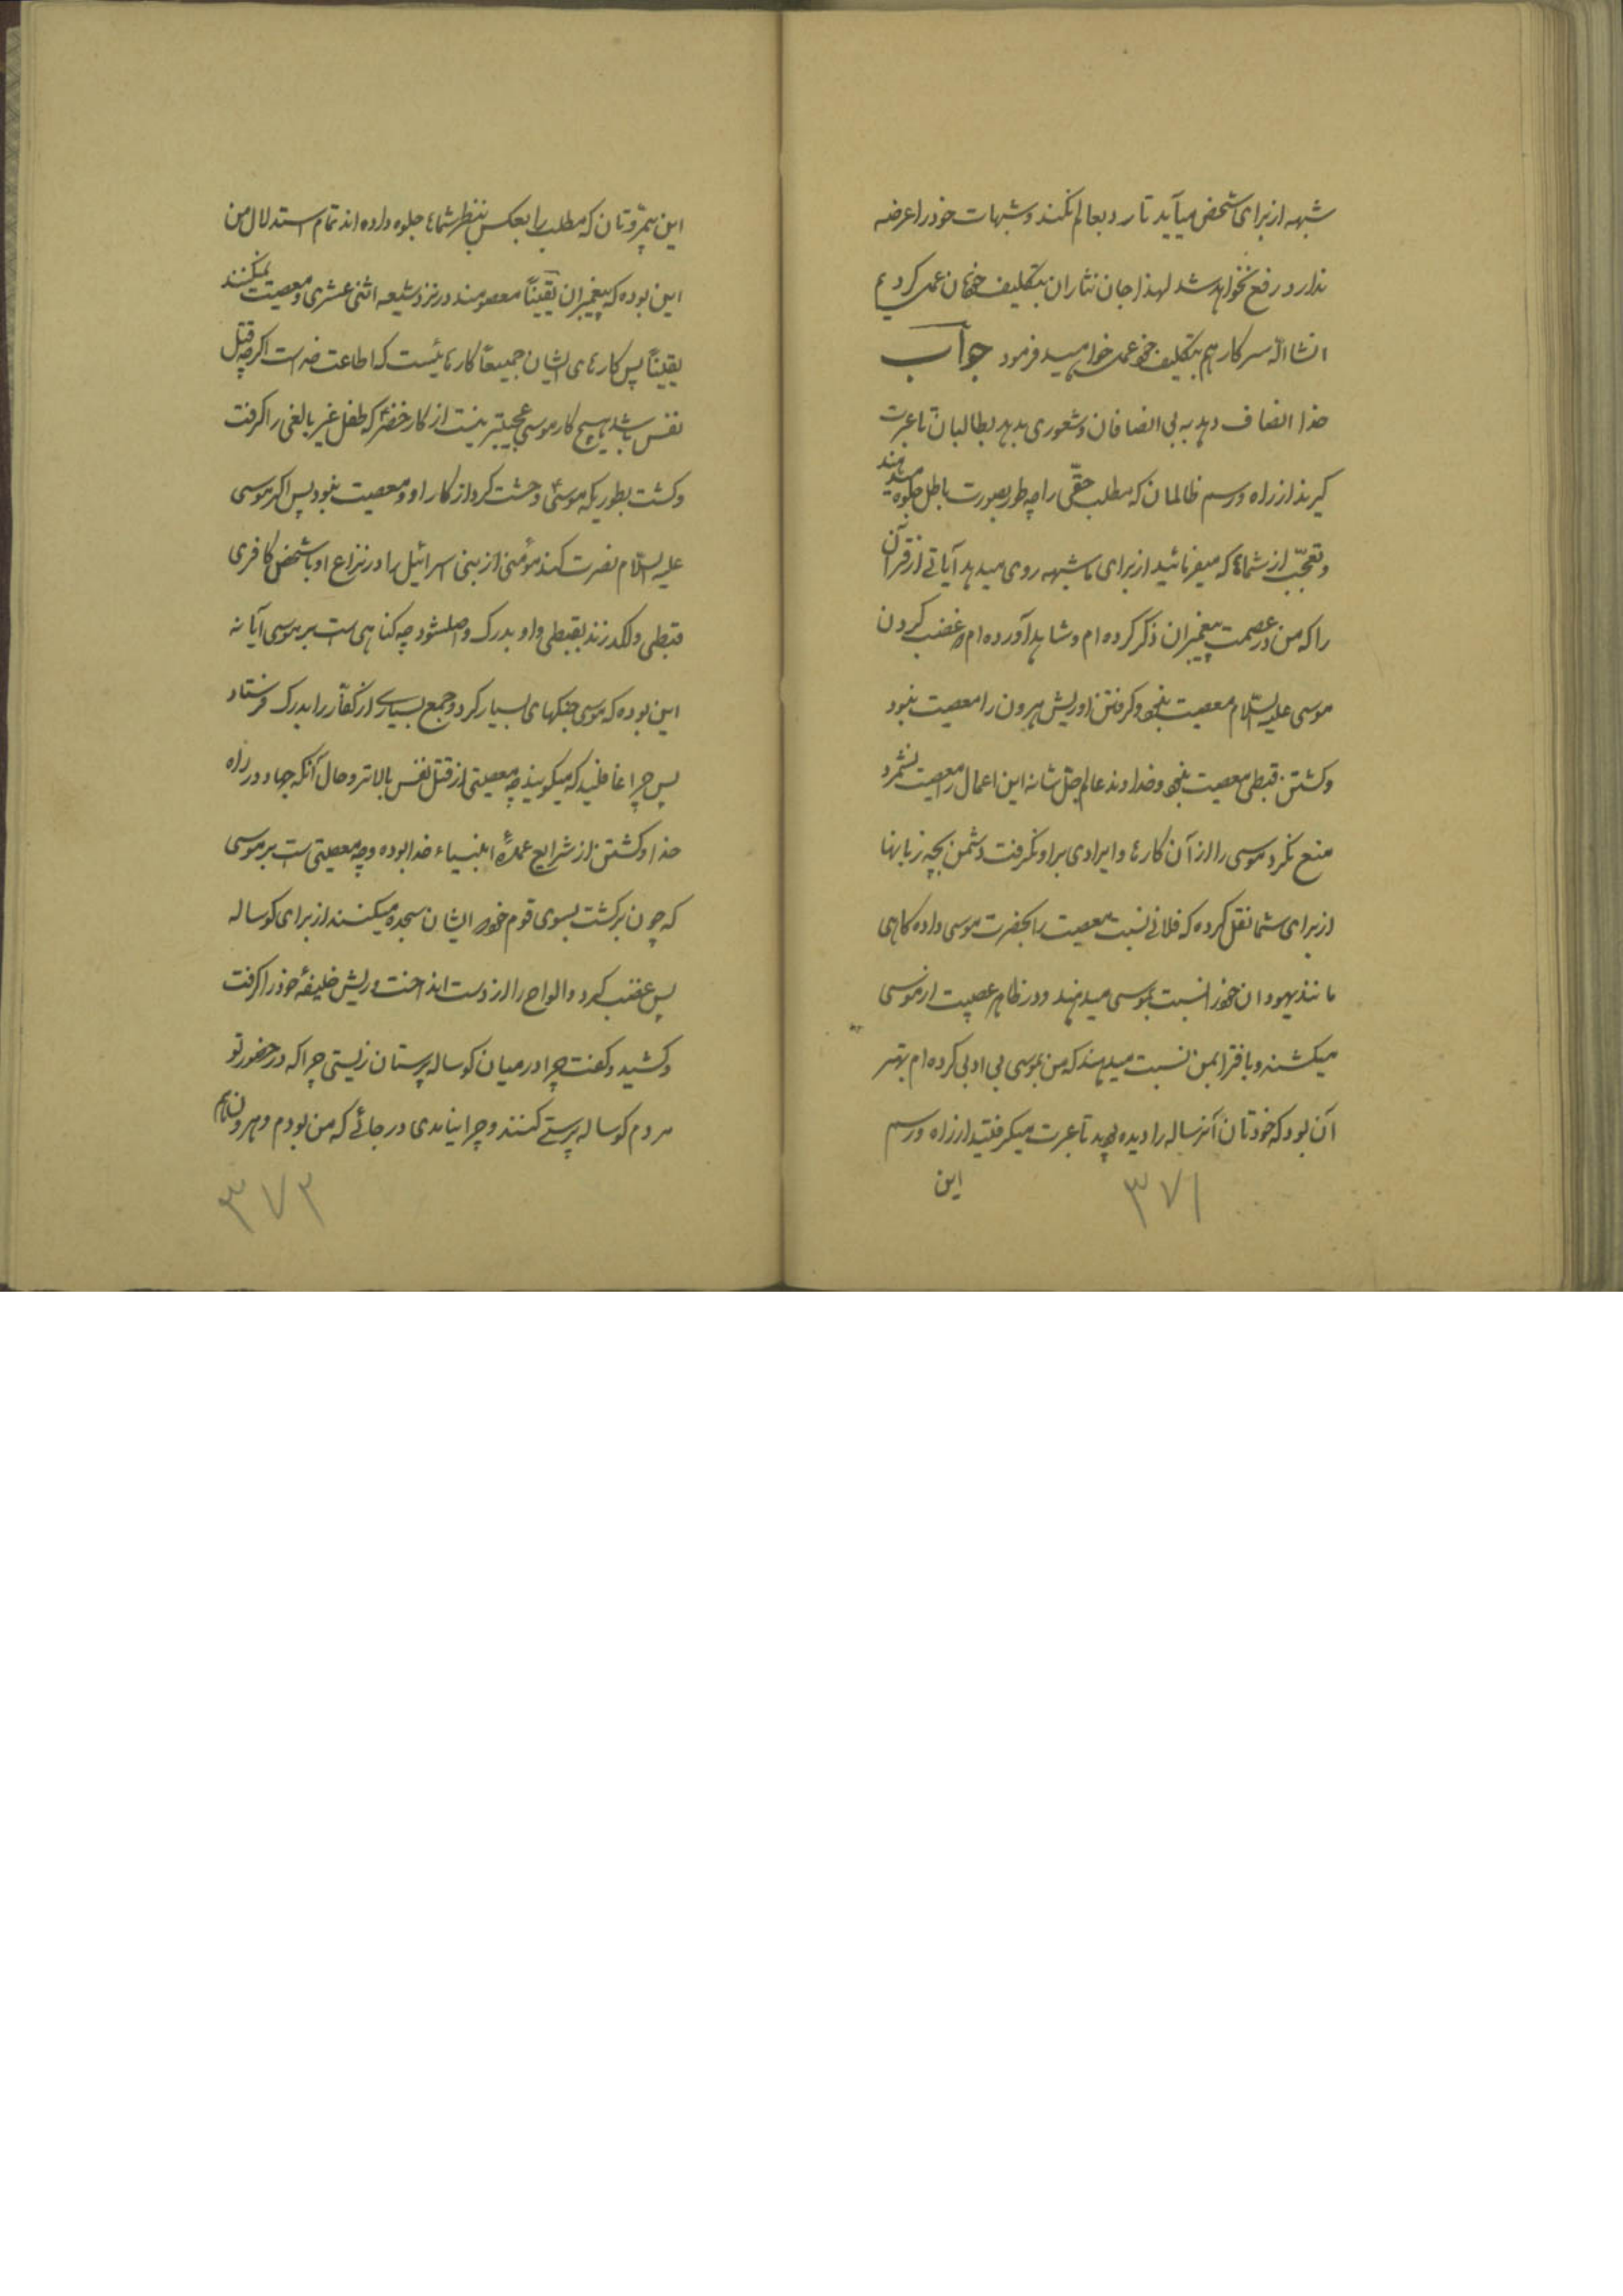 شبهه از برای شخص میآید تا رد بعالم نکند و شبهات خود را عرضه
ندارد رفع نخواهد شد لهذا جان نثاران بتکلیف خودمان عمل کردیم
انشاالله سرکار هم بتکلیف خود عمل خواهید فرمود جواب
خدا انصاف دهد به بی انصافان و شعوری بدهد بطالبان تا عبرت
گیرند از راه و رسم ظالمان که مطلب حقّی را چه طور بصورت باطل جلوه میدهند
و تعجّب از شماها که میفرمائید از برای ما شبهه روی میدهد آیاتی از قرآن
را که من در عصمت پیغمبران ذکر کرده ام و شاهد آورده ام که غضب کردن
موسی علیه السّلام معصیت نبود و گرفتن او ریش هرون را معصیت نبود
و کشتن قبطی معصیت نبود و خداوند عالم جلّ شانه این اعمال را معصیت نشمرد
منع نکرد موسی را از آن کارها و ایرادی بر او نگرفت دشمن بچه زبانها
از برای شما نقل کرده که فلانی نسبت معصیت را بحضرت موسی داده گاهی
مانند یهودان خود را نسبت بموسی میدهند و در ظاهر عصبیت از موسی
میکشند و بافترا بمن نسبت میدهند که من بموسی بی ادبی کرده ام بهتر
آن بود که خودتان آنرساله را دیده بودید تا عبرت میگرفتید از راه و رسم
این
۳۷۱
این بیمروّتان که مطلب را بعکس بنظر شماها جلوه داده اند تمام استدلال من
این بوده که پیغمبران یقیناً معصومند در نزد شیعه اثنی عشری و معصیت نمیکنند
یقیناً پس کارهای ایشان جمیعاً کارهائیست که اطاعت خدا است اگرچه قتل
نفس باشد هیچ کار موسی عجیبتر نیست از کار خضر که طفل غیر بالغی را گرفت
و کشت بطوریکه موسی وحشت کرد از کار او و معصیت نبود پس اگر موسی
علیه السّلام نصرت کند مؤمنی از بنی اسرائیل را در نزاع او با شخص کافری
قبطی و لگد زند بقبطی و او بدرک واصل شود چه گناهی است بر موسی آیا نه
این بوده که موسی جنگهای بسیار کرد و جمع بسیاری از کفّار را بدرک فرستاد
پس چرا غافلید که میگویید چه معصیتی از قتل نفس بالاتر و حال آنکه جهاد در راه
خدا و کشتن از شرایع عمدهٔ انبیاء خدا بوده و چه معصیتی است بر موسی
که چون برگشت بسوی قوم خود ایشان سجده میکنند از برای گوساله
پس غضب کرد و الواح را از دست انداخت و ریش خلیفهٔ خود را گرفت
و کشید و گفت چرا در میان گوساله پرستان زیستی چرا که در حضور تو
مردم گوساله پرستی کنند و چرا نیامدی در جائی که من بودم و هرون هم
۳۷۲